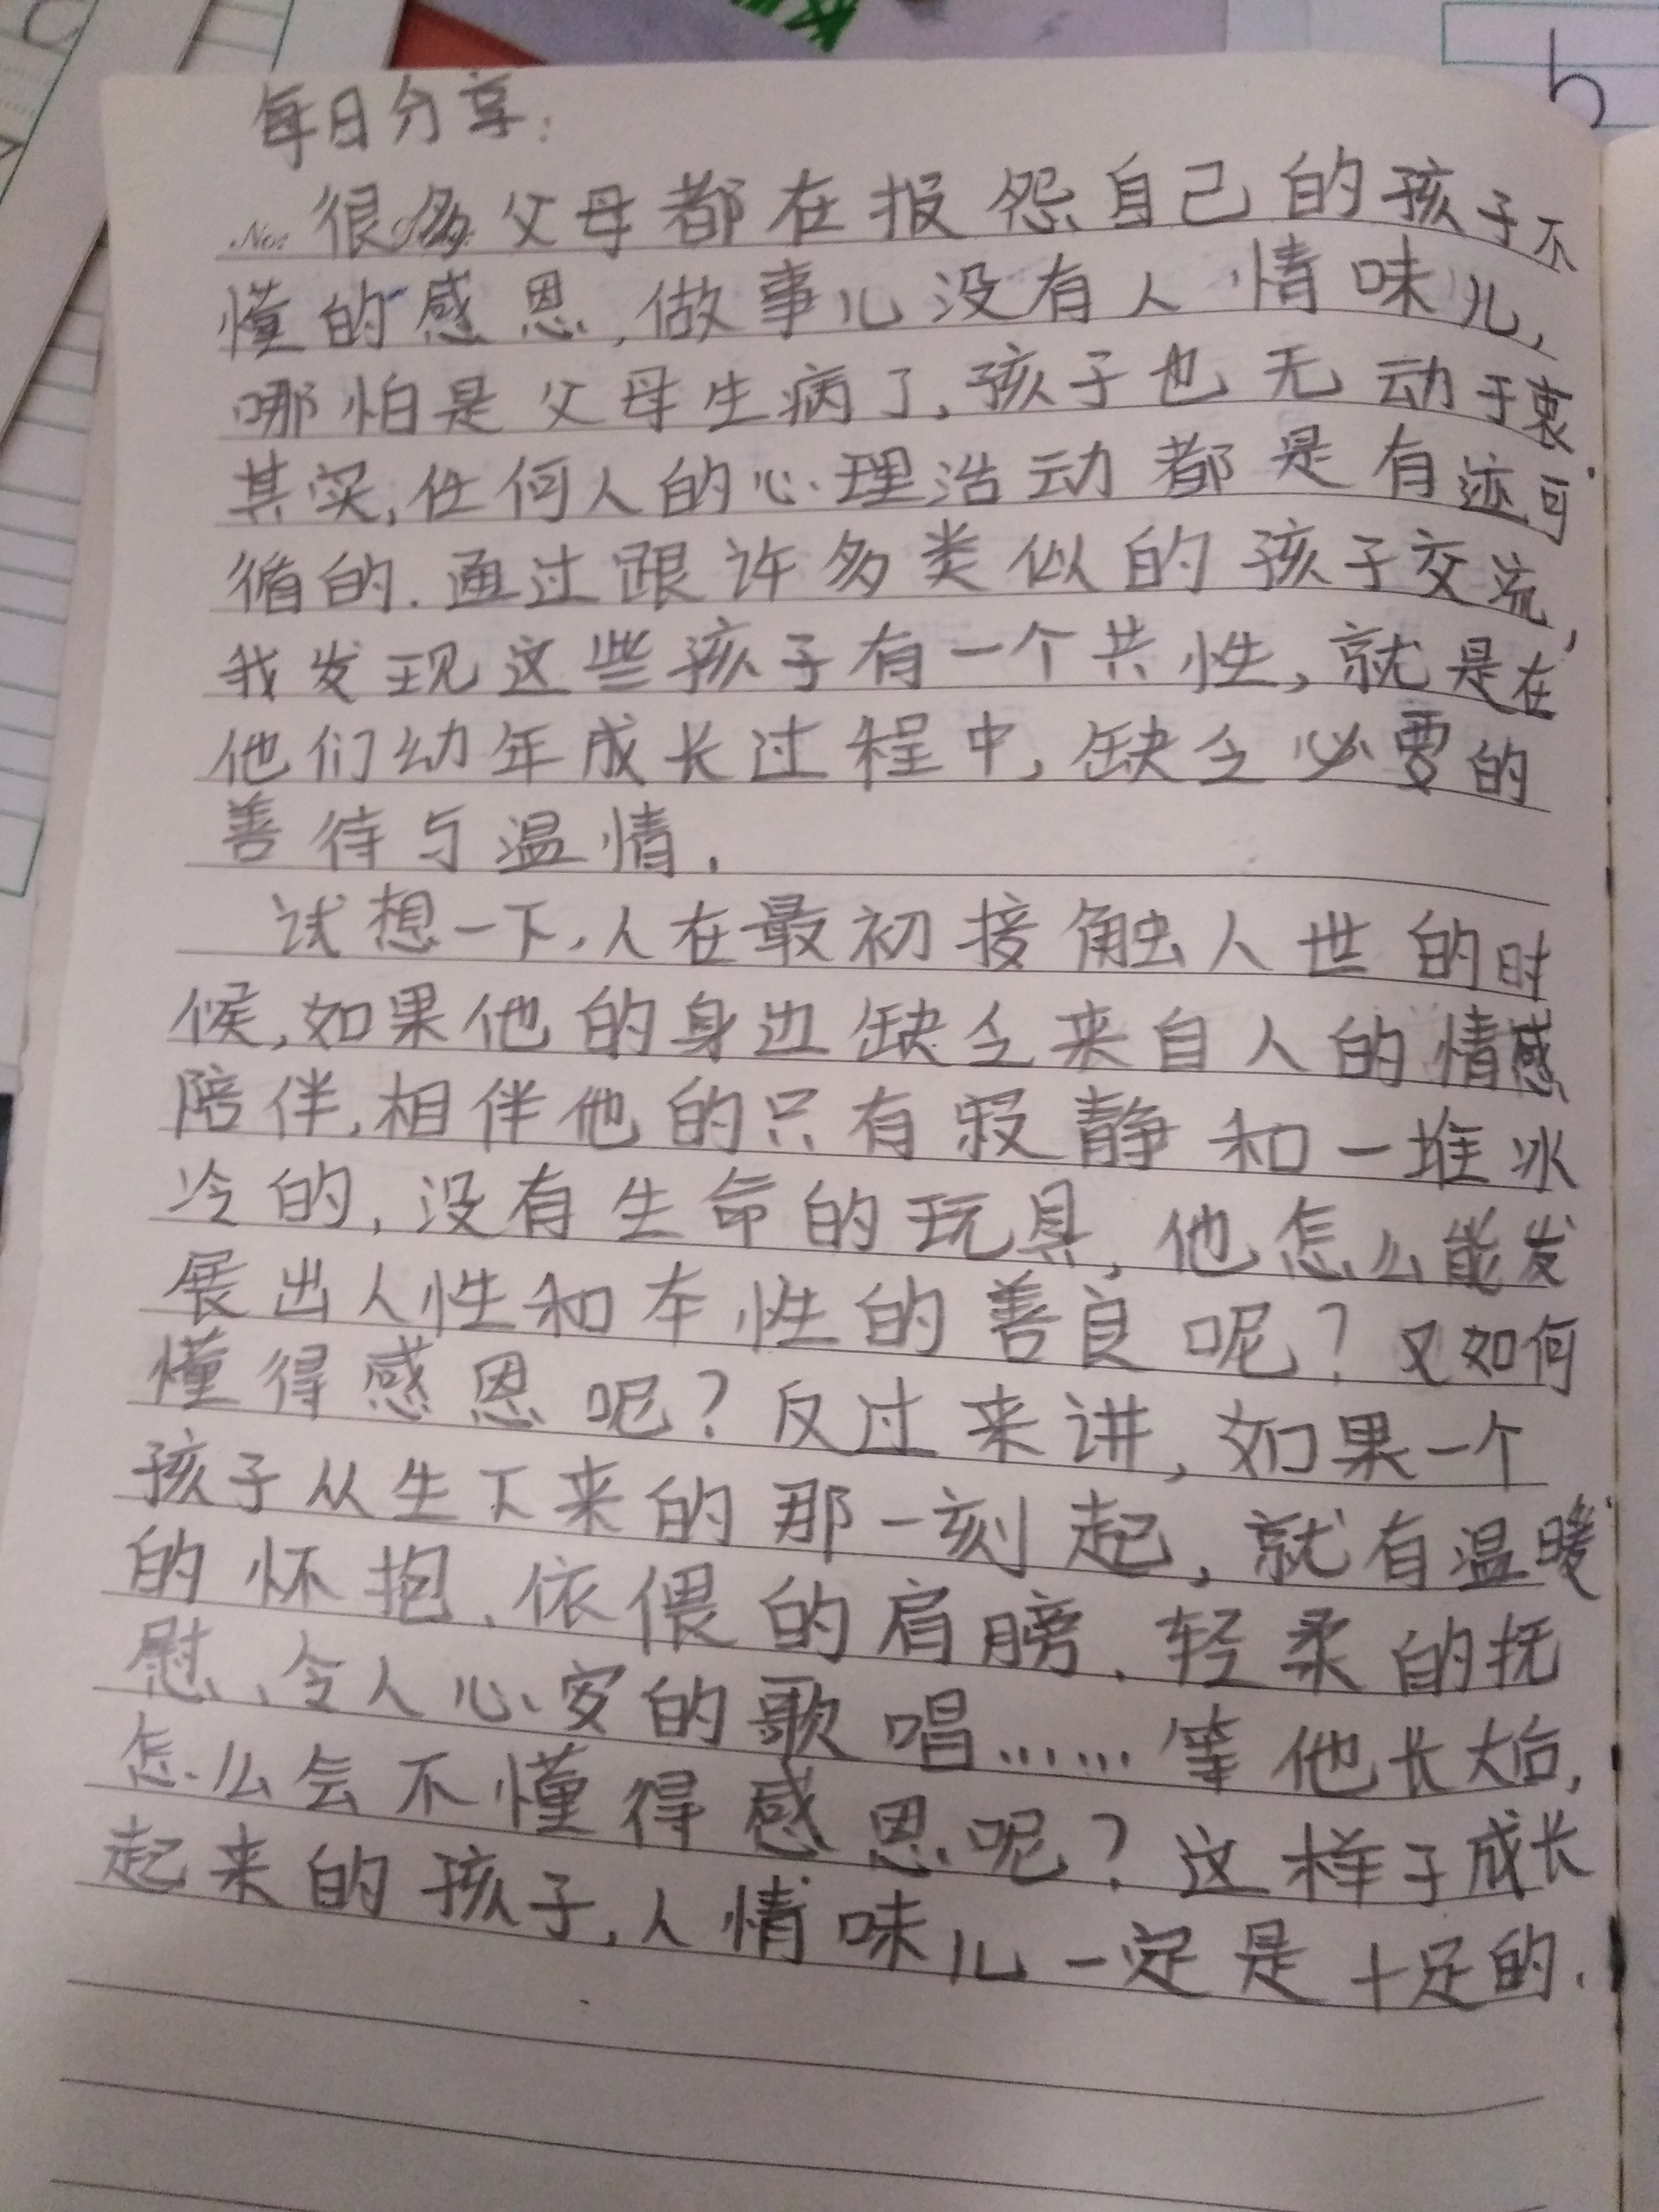 每日分享:
No:
很多父母都在报怨自己的孩子不
懂的感恩,做事儿没有人情味儿,
哪怕是父母生病了,孩子也无动于衷.
其实,任何人的心理活动都是有迹可
循的.通过跟许多类似的孩子交流,
我发现这些孩子有一个共性,就是在
他们幼年成长过程中,缺乏必要的
善待与温情.
试想一下,人在最初接触人世的时
候,如果他的身边缺乏来自人的情感
陪伴,相伴他的只有寂静和一堆冰
冷的,没有生命的玩具,他怎么能发
展出人性和本性的善良呢?又如何
懂得感恩呢?反过来讲,如果一个
孩子从生下来的那一刻起,就有温暖
的怀抱、依偎的肩膀、轻柔的抚
慰、令人心安的歌唱……等他长大后,
怎么会不懂得感恩呢?这样子成长
起来的孩子,人情味儿一定是十足的.